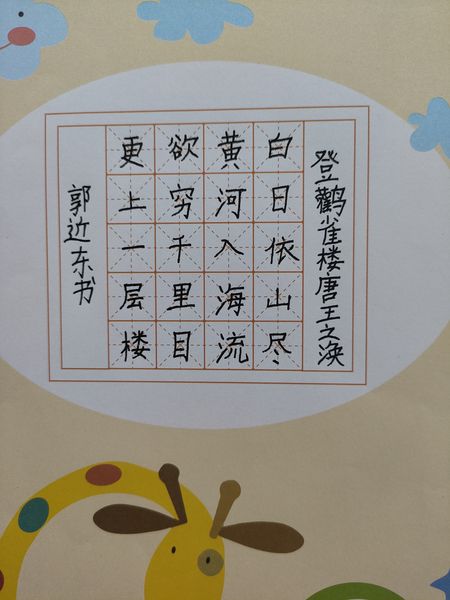 登鹳雀楼唐王之涣
白日依山尽
黄河入海流
欲穷千里目
更上一层楼
郭近东书